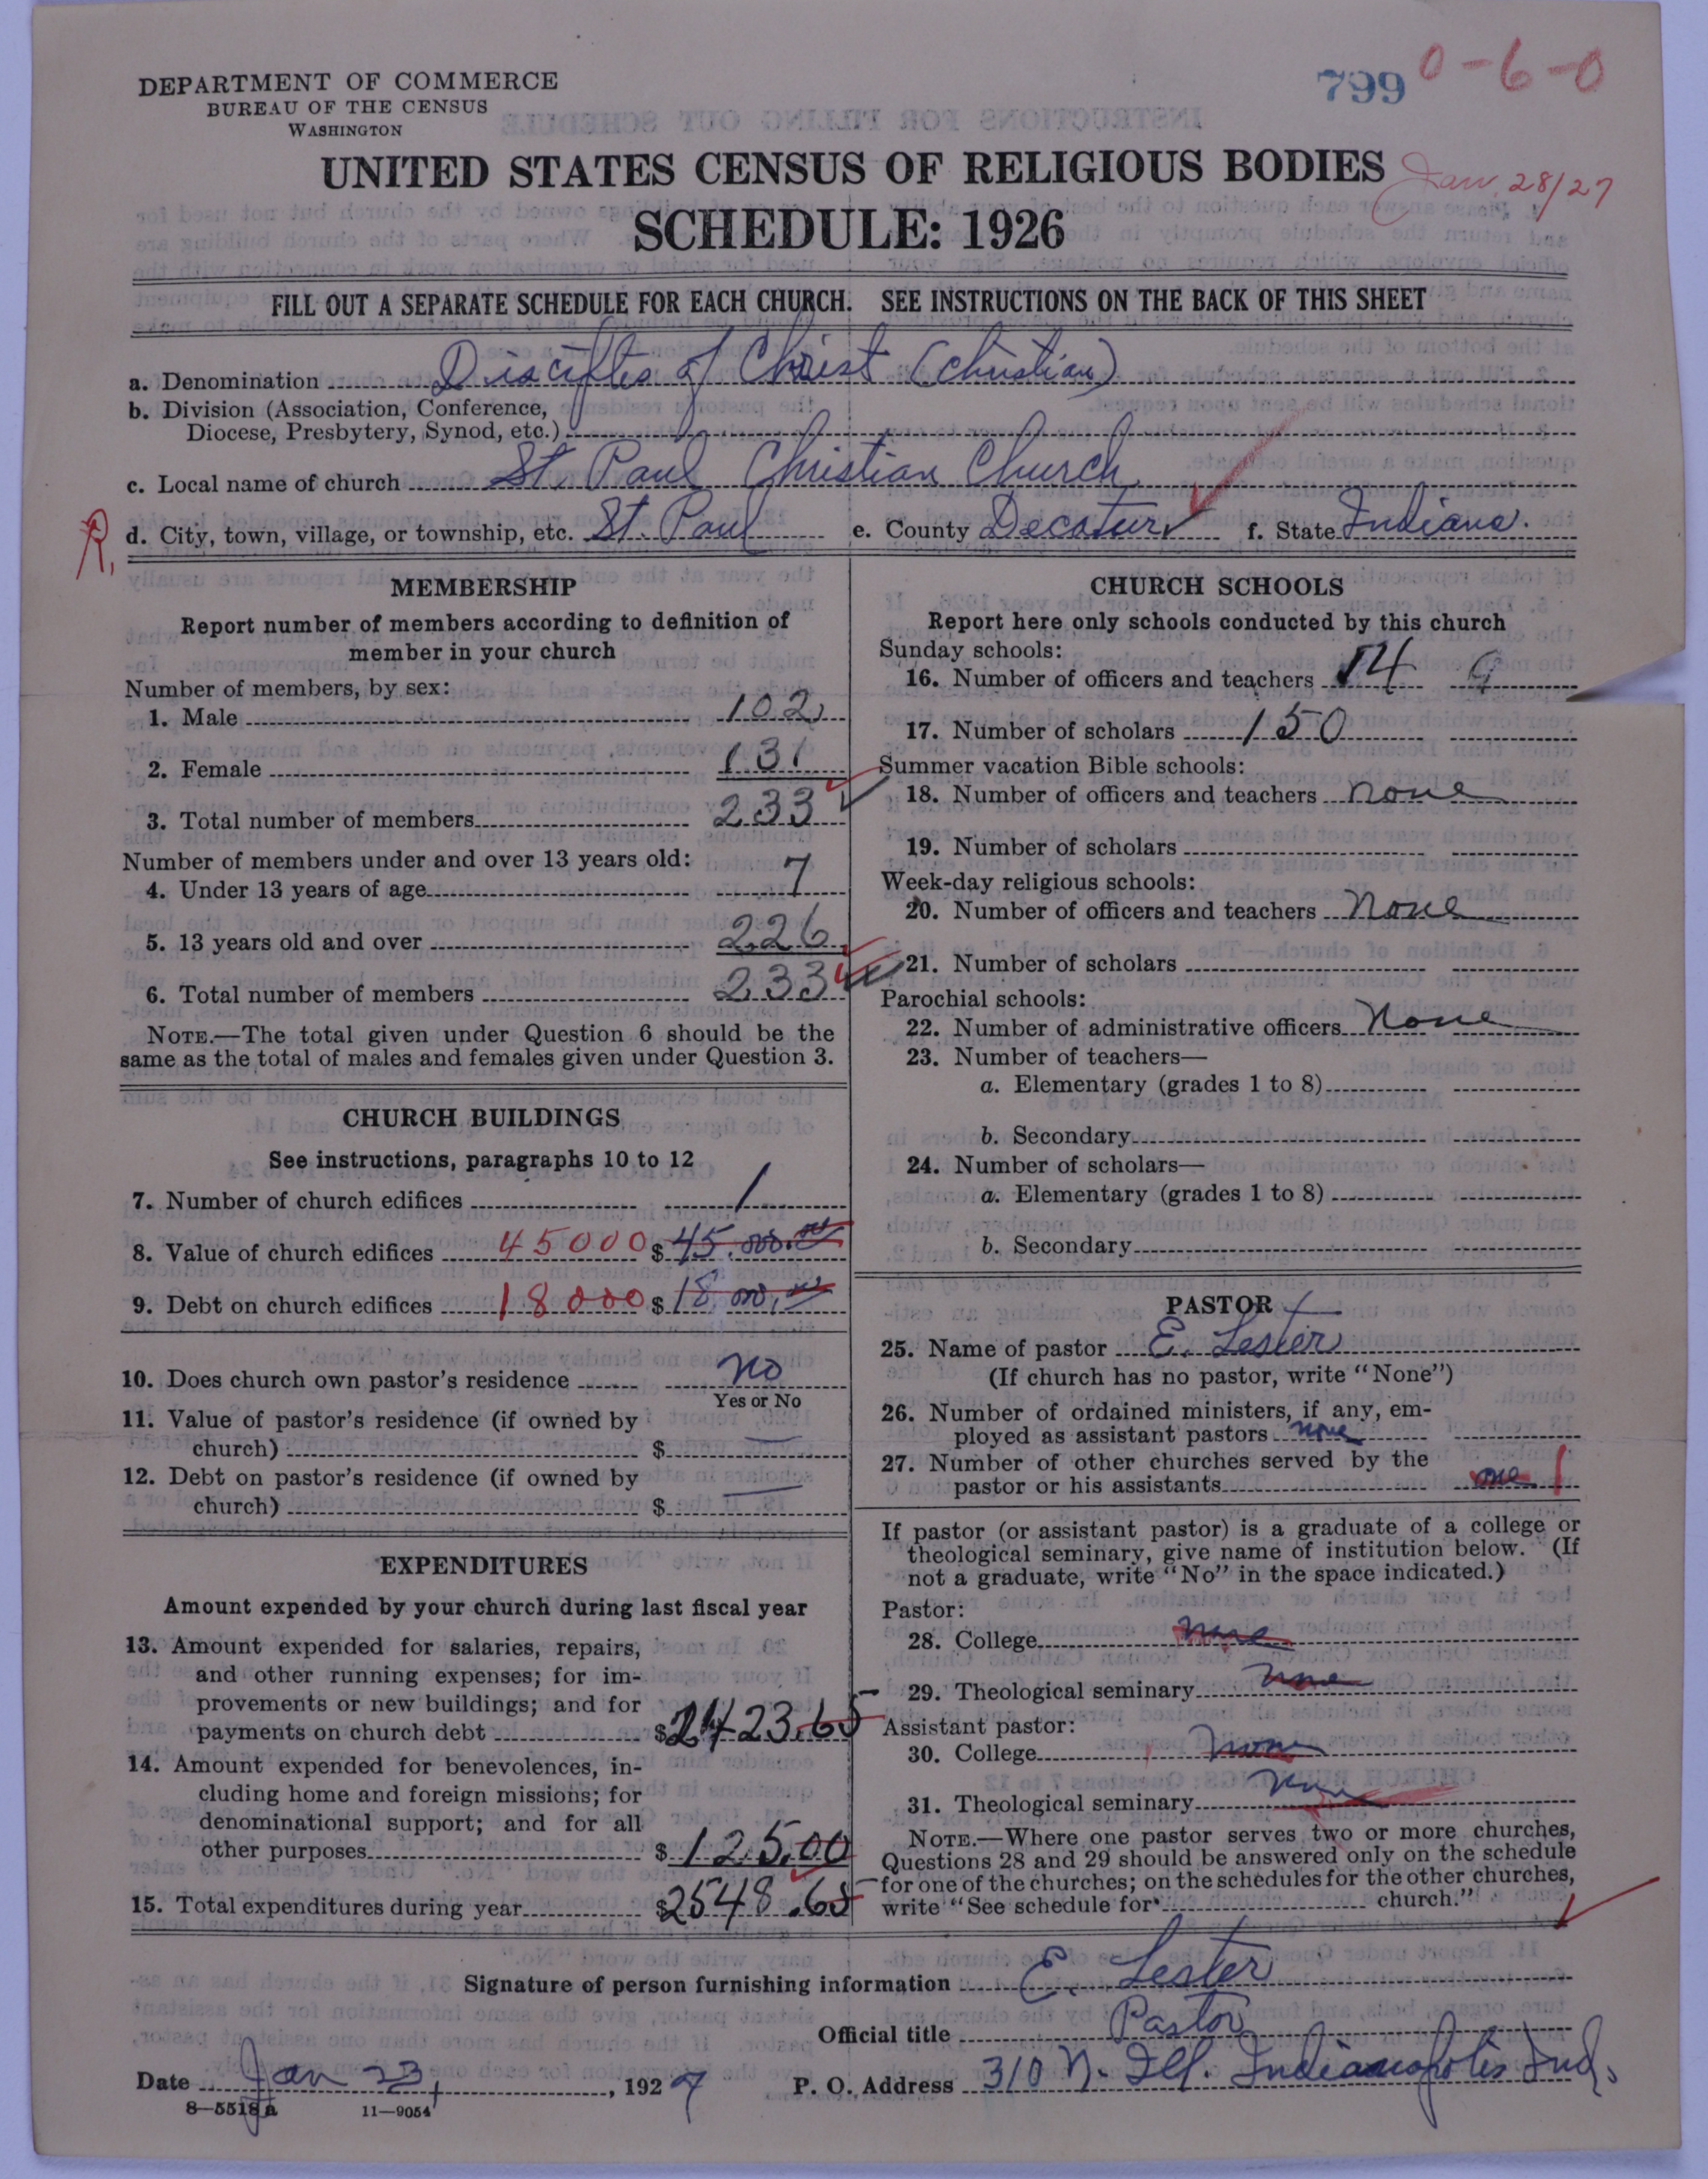 DEPARTMENT OF COMMERCE
BUREAU OF THE CENSUS
WASHINGTON
799 0-6-0
UNITED STATES CENSUS OF RELIGIOUS BODIES
Jan. 28/27
SCHEDULE: 1926
FILL OUT A SEPARATE SCHEDULE FOR EACH CHURCH. SEE INSTRUCTIONS ON THE BACK OF THIS SHEET
a. Denomination Disciples of Christ (Christian)
b. Division (Association, Conference,
Diocese, Presbytery, Synod, etc.)
c. Local name of church St. Paul Christian Church
R. d. City, town, village, or township, etc. St. Paul e. County Decatur f. State Indiana.
MEMBERSHIP
Report number of members according to definition of
member in your church
Number of members, by sex:
1. Male 102
2. Female 131
3. Total number of members 233
Number of members under and over 13 years old:
4. Under 13 years of age 7
5. 13 years old and over 226
6. Total number of members 233
NOTE.—The total given under Question 6 should be the
same as the total of males and females given under Question 3.
CHURCH BUILDINGS
See instructions, paragraphs 10 to 12
7. Number of church edifices 1
8. Value of church edifices 45000 $ 45.000.00
9. Debt on church edifices 18000 $ 18.000.00
10. Does church own pastor's residence no
Yes or No
11. Value of pastor's residence (if owned by
church) $
12. Debt on pastor's residence (if owned by
church) $
EXPENDITURES
Amount expended by your church during last fiscal year
13. Amount expended for salaries, repairs,
and other running expenses; for im-
provements or new buildings; and for
payments on church debt $2423.65
14. Amount expended for benevolences, in-
cluding home and foreign missions; for
denominational support; and for all
other purposes $ 125.00
15. Total expenditures during year $2548.65
CHURCH SCHOOLS
Report here only schools conducted by this church
Sunday schools:
16. Number of officers and teachers 14 9
17. Number of scholars 150
Summer vacation Bible schools:
18. Number of officers and teachers none
19. Number of scholars
Week-day religious schools:
20. Number of officers and teachers None
21. Number of scholars
Parochial schools:
22. Number of administrative officers None
23. Number of teachers—
a. Elementary (grades 1 to 8)
b. Secondary
24. Number of scholars—
a. Elementary (grades 1 to 8)
b. Secondary
PASTOR
25. Name of pastor E. Lester
(If church has no pastor, write "None")
26. Number of ordained ministers, if any, em-
ployed as assistant pastors none
27. Number of other churches served by the
pastor or his assistants one 1
If pastor (or assistant pastor) is a graduate of a college or
theological seminary, give name of institution below. (If
not a graduate, write "No" in the space indicated.)
Pastor:
28. College none
29. Theological seminary none
Assistant pastor:
30. College none
31. Theological seminary
NOTE.—Where one pastor serves two or more churches,
Questions 28 and 29 should be answered only on the schedule
for one of the churches; on the schedules for the other churches,
write "See schedule for church."
Signature of person furnishing information E. Lester
Official title Pastor
Date Jan 23, 1927 P. O. Address 310 N. Ill. Indianapolis Ind.
8—5518 a 11—9054